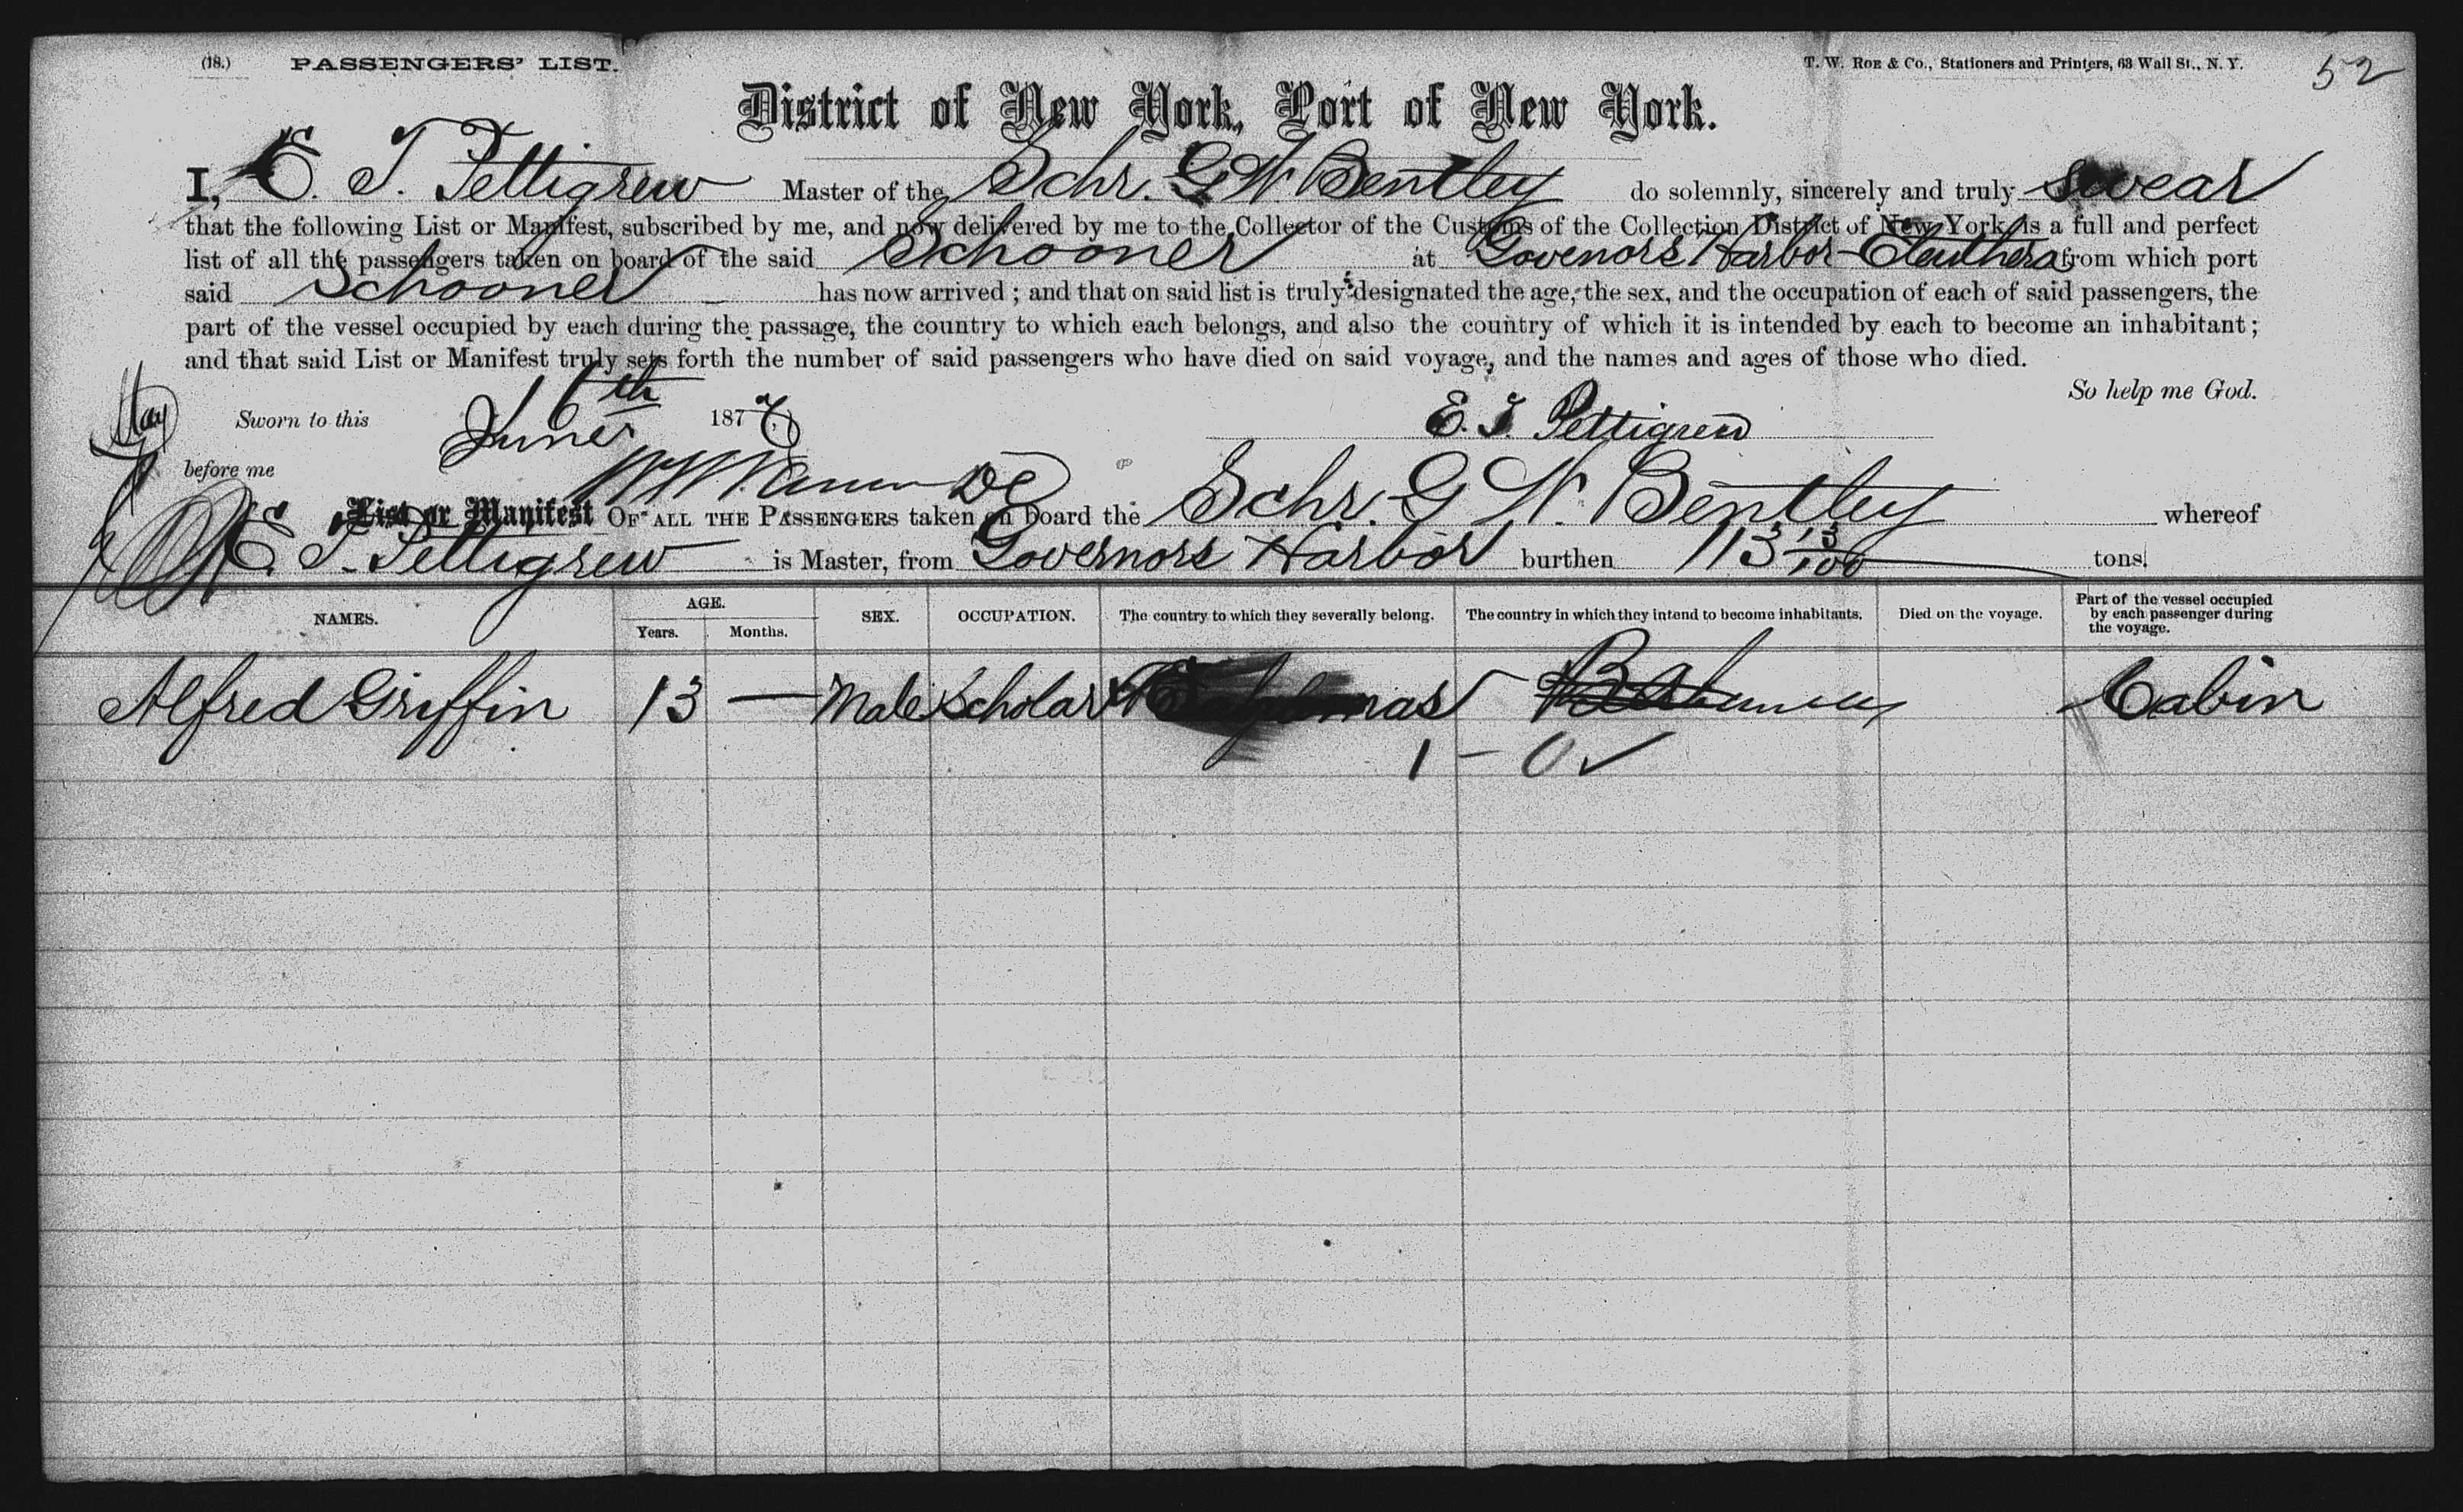 (18.) PASSENGERS' LIST. T. W. ROE & CO., Stationers and Printers, 63 Wall St., N. Y. 52
District of New York, Port of New York.
I, E. T. Pettigrew Master of the Schr. G W. Bentley do solemnly, sincerely and truly swear
that the following List or Manifest, subscribed by me, and now delivered by me to the Collector of the Customs of the Collection District of New York, is a full and perfect
list of all the passengers taken on board of the said Schooner at Govenors Harbor Eleuthera from which port
said Schooner has now arrived; and that on said list is truly designated the age, the sex, and the occupation of each of said passengers, the
part of the vessel occupied by each during the passage, the country to which each belongs, and also the country of which it is intended by each to become an inhabitant;
and that said List or Manifest truly sets forth the number of said passengers who have died on said voyage, and the names and ages of those who died.
So help me God.
Sworn to this 16th June 187 E. T. Pettigrew
before me
List or Manifest OF ALL THE PASSENGERS taken on board the Schr. G W. Bentley whereof
E. T. Pettigrew is Master, from Governors Harbor burthen 113 13/100 tons.
NAMES. AGE. Years. Months. SEX. OCCUPATION. The country to which they severally belong. The country in which they intend to become inhabitants. Died on the voyage. Part of the vessel occupied by each passenger during the voyage.
Alfred Griffin 13 — Male Scholar Cabin
1 - 0 ✓